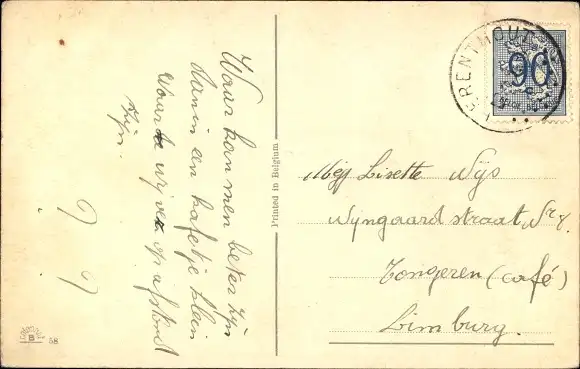 Waar kan men beter zijn
dan in een kafeetje klein
Waar wij ver op afstand
zijn.
? ?
Printed in Belgium
Mej Lisette Wijs
Wijngaard straat Nr 8.
Tongeren (café)
Limburg.
90
B
58